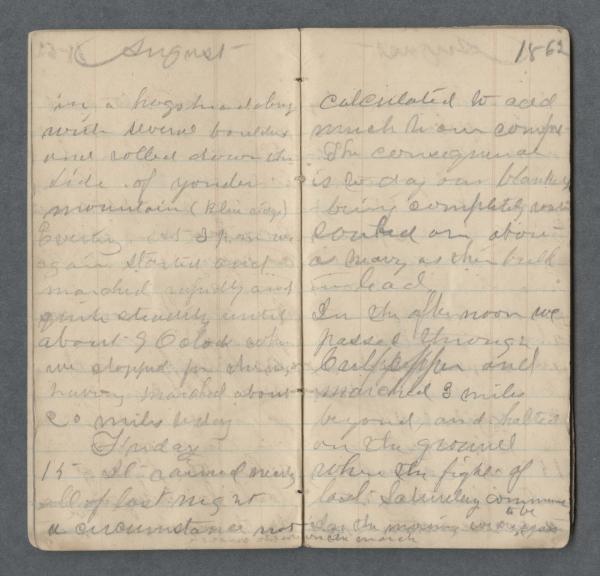 August
in a hogshead along
with several boulders
and rolled down the
side of yonder
mountain (Blue ridge)
Evening. At 3 p.m we
again started and
marched rapidly and
quite steadily until
about 9 Oclock when
we stopped for the night
having marched about
20 miles to day
Friday
15 It rained nearly
all of last night
a circumstance not
1862
calculated to add
much to our comfort
The consequence
is to day our blankets
being completely
soaked are about
as heavy as their bulk
in lead
In the afternoon we
passed through
Culpepper and
marched 3 miles
beyond and halted
on the ground
where the fight of
last Saturday commenced
In the morning we
to be
on the march